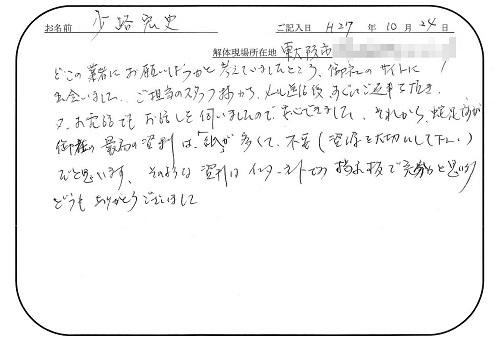 お名前 少路宏史 ご記入日 H27年10月24日
解体現場所在地 東大阪市
どこの業者にお願いしようかと考えていましたところ、御社のサイトに
出会いました。ご担当のスタッフ様から、メール送信後、すぐにご返事を頂き
又、お電話でもお話しを伺いましたので、安心できました。それから、蛇足ですが
御社の最高の資料は、「紙」が多くて、不要(資源を大切にして下さい)
だと思います。そのような資料はインターネットでの掲示板で充分かと思います
どうもありがとうございました